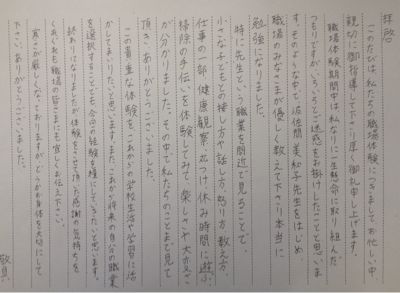 拝啓
このたびは、私たちの職場体験につきましてお忙しい中、
親切に御指導して下さり厚く御礼申し上げます。
職場体験期間中は、私なりに一生懸命に取り組んだ
つもりですが、いろいろとご迷惑をお掛けしたことと思いま
す。そのような中で、佐間美和子先生をはじめ、
職場のみなさまが優しく教えて下さり本当に
勉強になりました。
特に先生という職業を間近で見ることで、
小さな子どもとの接し方や話し方、怒り方、教え方、
仕事の一部、健康観察、丸つけ、休み時間に遊ぶ、
掃除の手伝いを体験してみて、楽しさや大変さ
が分かりました。その中で私たちのことまで見て
頂きありがとうございました。
この貴重な体験を、これからの学校生活や学習に活
かしてまいりたいと思います。また、これから将来の自分の職業
を選択することでも、今回の経験を糧にしていきたいと思います。
終わりになりましたが、体験をさせて頂いた感謝の気持ちを
くれぐれも職場の皆さまにも宜しくお伝え下さい。
寒さが厳しくなっておりますが、どうかお身体を大切にして
下さい。ありがとうございました。
敬具